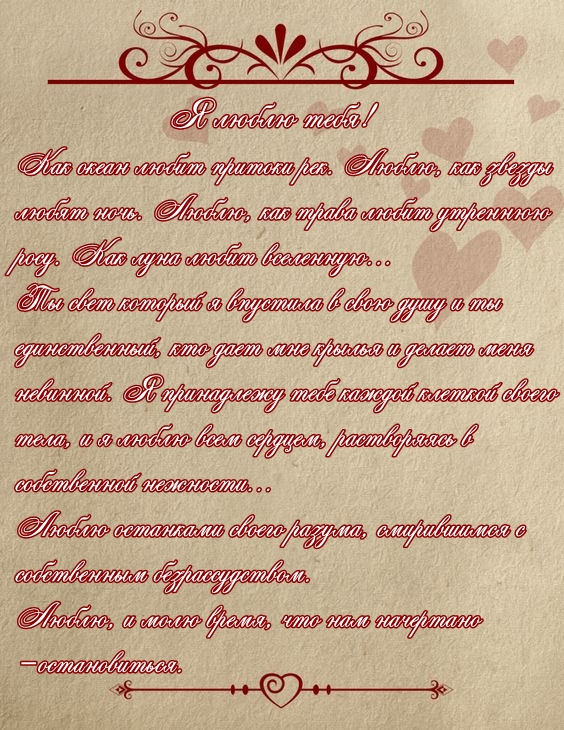 Я люблю тебя!
Как океан любит притоки рек. Люблю, как звезды
любят ночь. Люблю, как трава любит утреннюю
росу. Как луна любит вселенную...
Ты свет который я впустила в свою душу и ты
единственный, кто дает мне крылья и делает меня
невинной. Я принадлежу тебе каждой клеткой своего
тела, и я люблю всем сердцем, растворяясь в
собственной нежности...
Люблю останками своего разума, смирившимся с
собственным безрассудством.
Люблю, и молю время, что нам начертано
–остановиться.